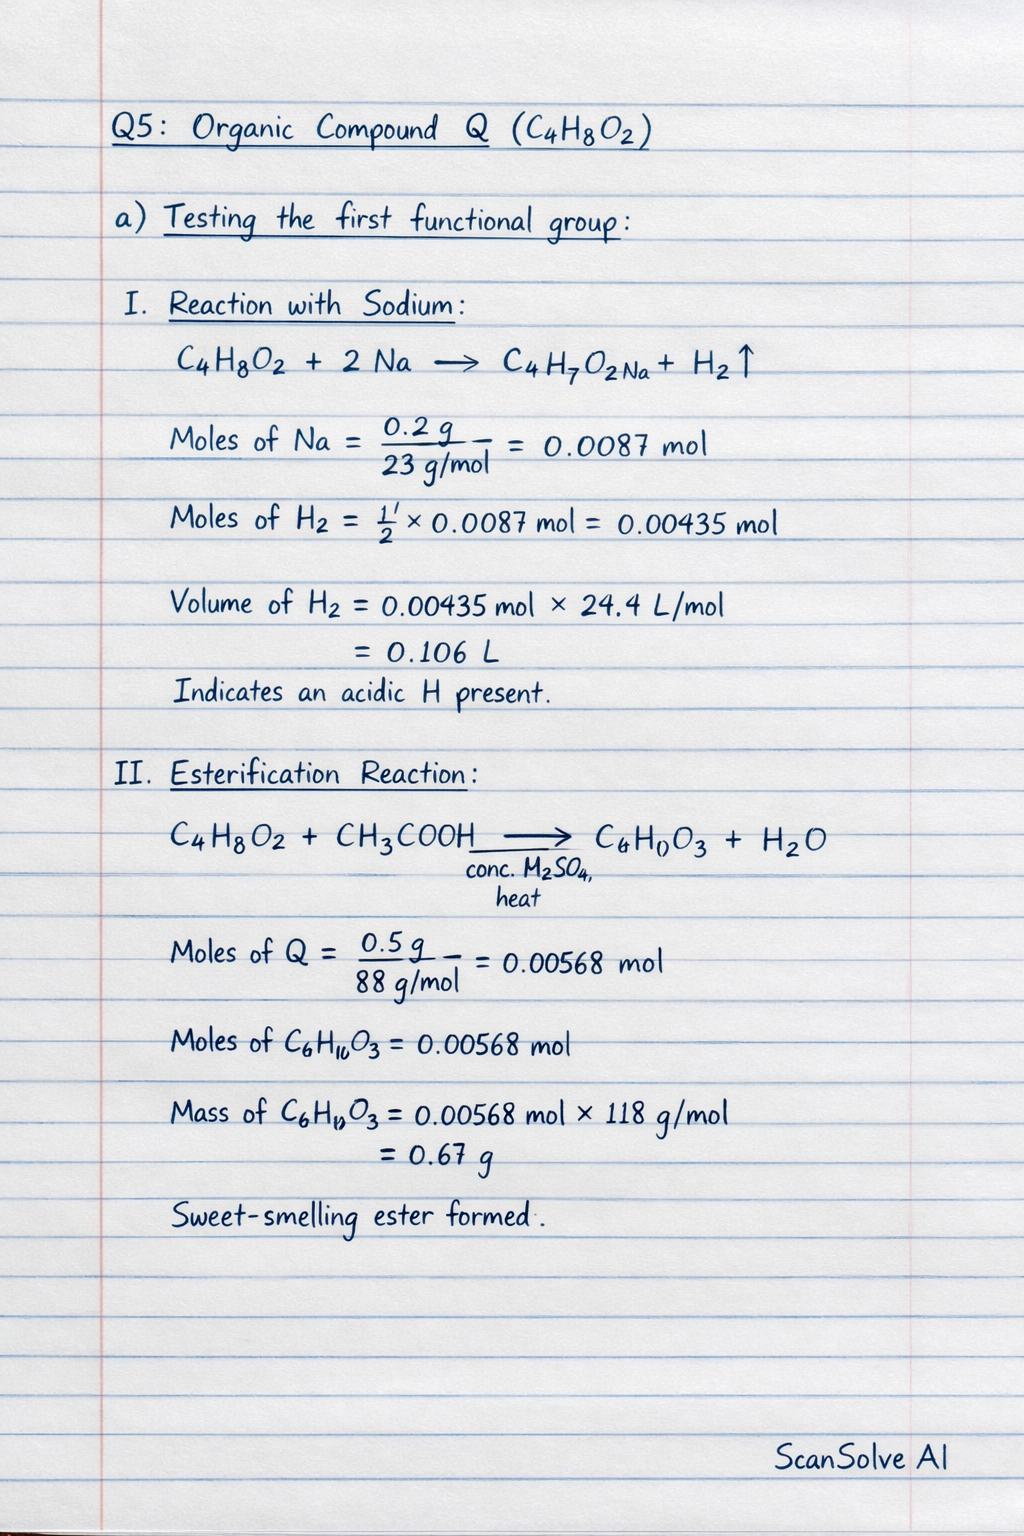 Q5: Organic Compound Q (C₄H₈O₂)
a) Testing the first functional group:
I. Reaction with Sodium:
C₄H₈O₂ + 2 Na → C₄H₇O₂Na + H₂↑
Moles of Na = 0.2 g / 23 g/mol = 0.0087 mol
Moles of H₂ = 1/2 × 0.0087 mol = 0.00435 mol
Volume of H₂ = 0.00435 mol × 24.4 L/mol
= 0.106 L
Indicates an acidic H present.
II. Esterification Reaction:
C₄H₈O₂ + CH₃COOH → + H₂O
conc. M₂SO₄,
heat
Moles of Q = 0.5 g / 88 g/mol = 0.00568 mol
Moles of = 0.00568 mol
Mass of = 0.00568 mol × 118 g/mol
= 0.67 g
Sweet-smelling ester formed.
ScanSolve AI